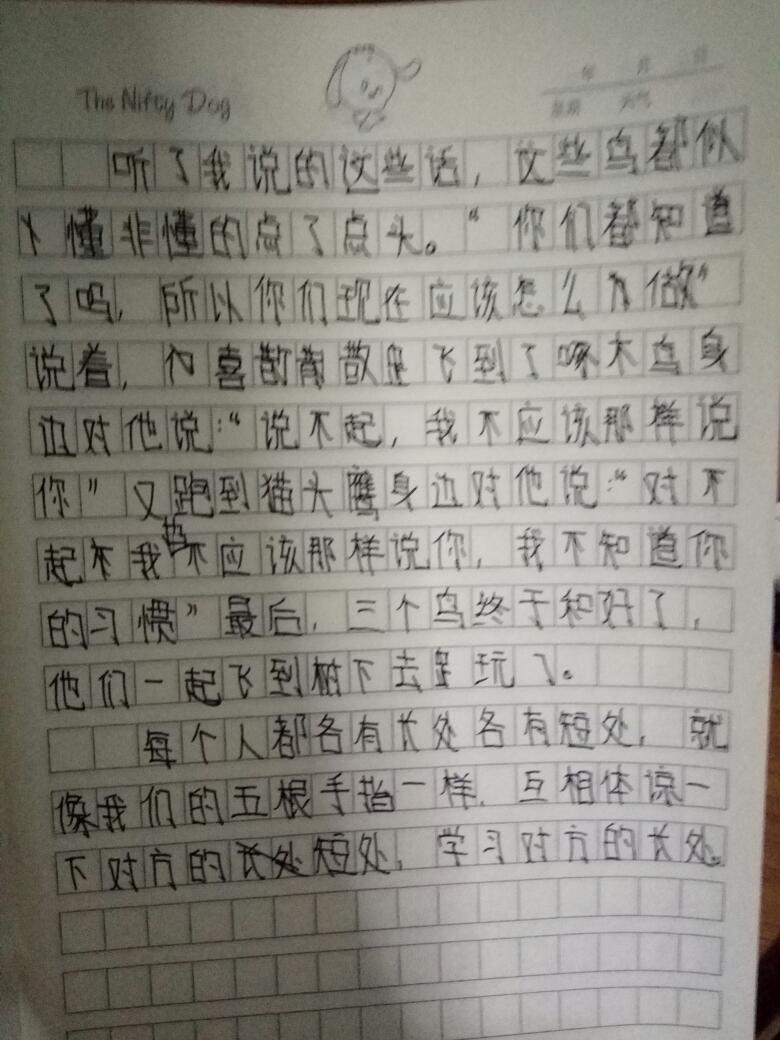 The Nifty Dog
年 月 日
星期 天气
听了我说的这些话，这些鸟都似
懂非懂的点了点头。“你们都知道
了吗，所以你们现在应该怎么 做”
说着，喜 飞到了啄木鸟身
边对他说：“说不起，我不应该那样说
你”又跑到猫头鹰身边对他说：“对不
起 我 不应该那样说你，我不知道你
的习惯”最后，三个鸟终于和好了，
他们一起飞到树下去 玩了。
每个人都各有长处各有短处，就
像我们的五根手指一样，互相体谅一
下对方的 短处，学习对方的长处。